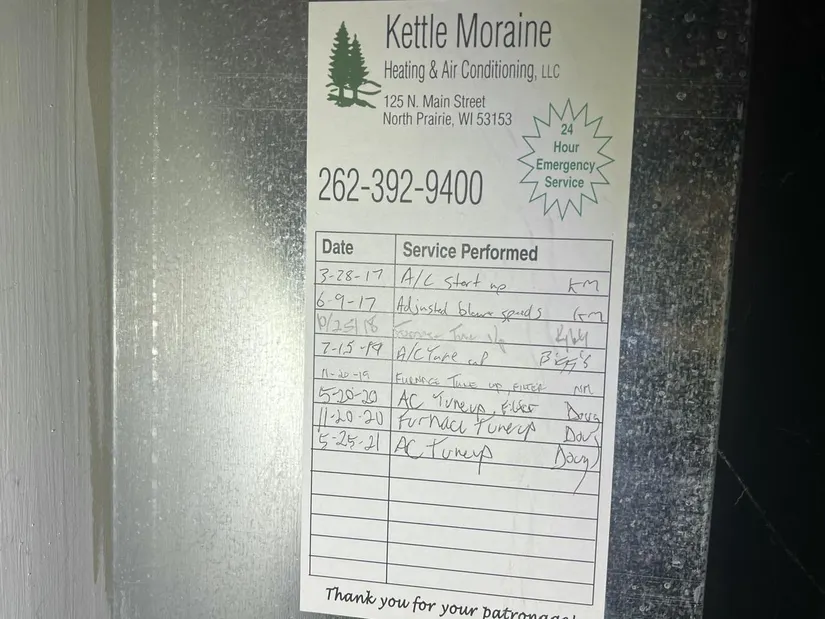 Kettle Moraine
Heating & Air Conditioning, LLC
125 N. Main Street
North Prairie, WI 53153
24
Hour
Emergency
Service
262-392-9400
Date Service Performed
3-28-17 A/C start up KM
6-9-17 Adjusted blower speeds KM
10/25/18 Furnace Tune Up
7-15-19 A/C Tune up
11-20-19 FURNACE TUNE UP, FILTER NM
5-20-20 AC Tuneup, Filter Doug
11-20-20 Furnace Tuneup Doug
5-25-21 AC Tuneup Doug
Thank you for your patronage!